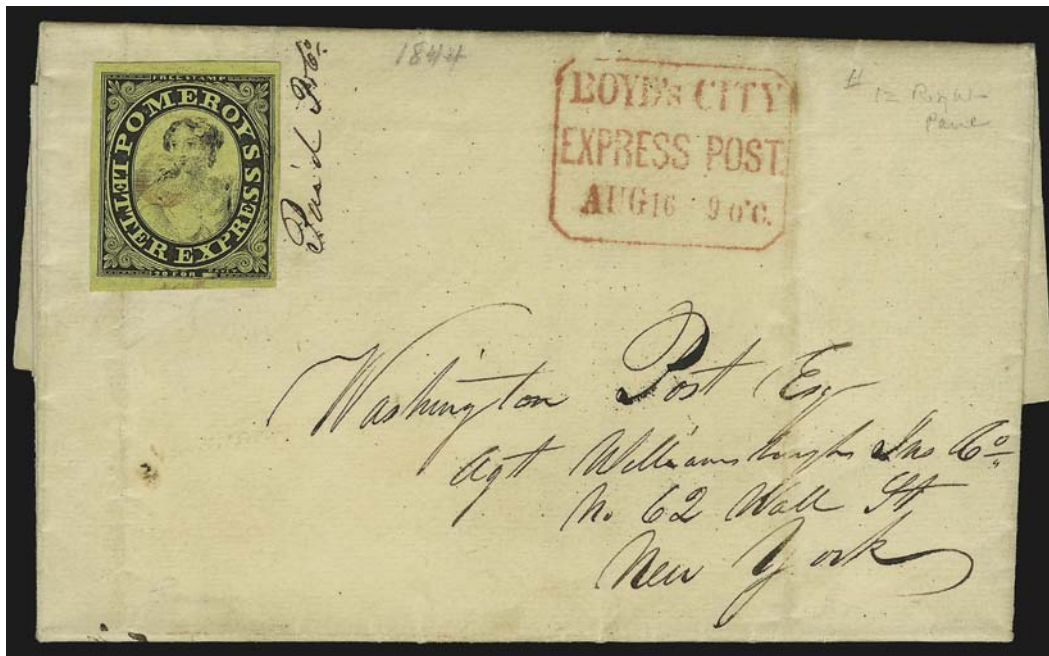 FREE STAMP
POMEROY'S
LETTER EXPRESS
20 FOR
Pai'd
1844
BOYD's CITY
EXPRESS POST.
AUG 16 9 O'C.
12 Right
Pane
Washington Post Esq
Agt Williamsburgh Ins Co
No 62 Wall St
New York